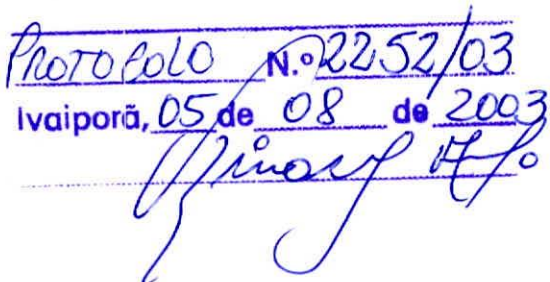 PROTOCOLO N.º 2252/03
Ivaiporã, 05 de 08 de 2003